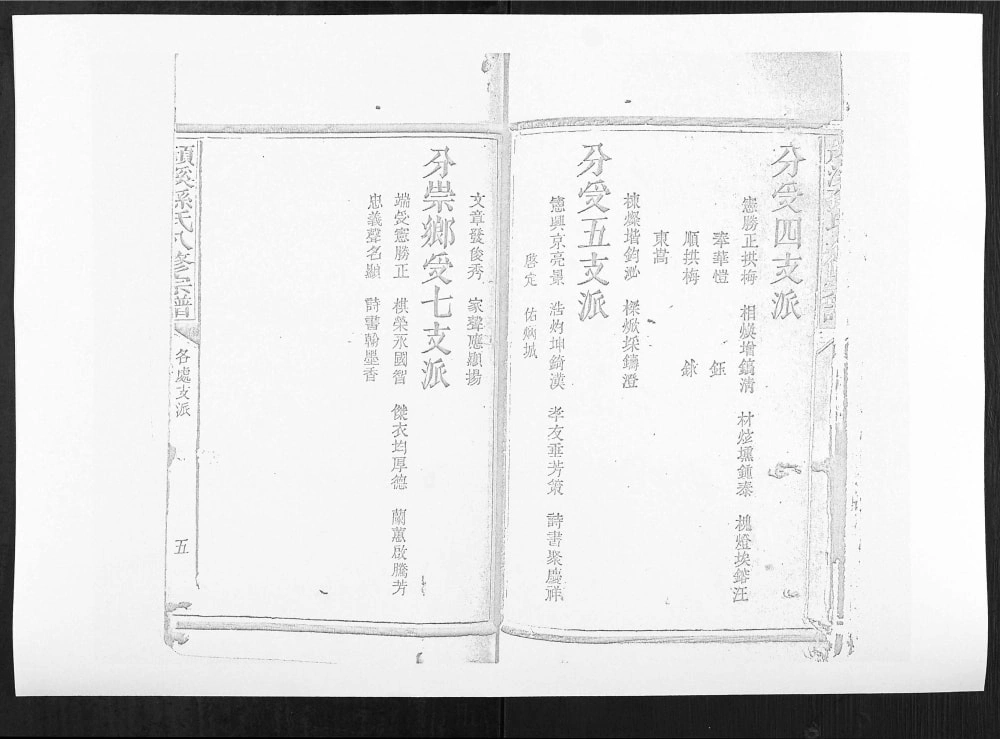 分受四支派
憲勝正拱梅 相煐增鎬清 材炂壎鍾泰 槐燈埃鎔汪
奉華愷 鈺
順拱梅 銶
東嵩
棟燦堦鈞泌 樑焮埰鑄澄
分受五支派
憲興京亮景 浩灼坤錡漢 孝友垂芳策 詩書衆慶祥
啓定 佑炯城
文章發俊秀 家聲應顯揚
分崇鄉受七支派
端受憲勝正 棋榮永國智 傑衣均厚德 蘭蕙啟騰芳
忠義聲名顯 詩書翰墨香
頭溪孫氏八修宗譜
各處支派
五